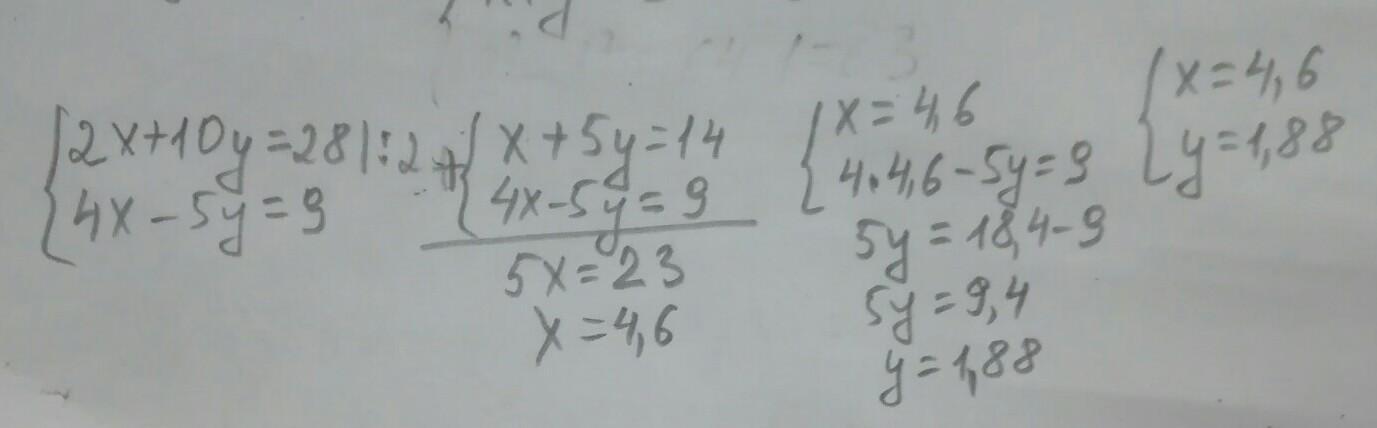 { 2x+10y=28 |:2
4x-5y=9
+ { x+5y=14
4x-5y=9
5x=23
x=4,6
{ x=4,6
4·4,6-5y=9
5y=18,4-9
5y=9,4
y=1,88
{ x=4,6
y=1,88